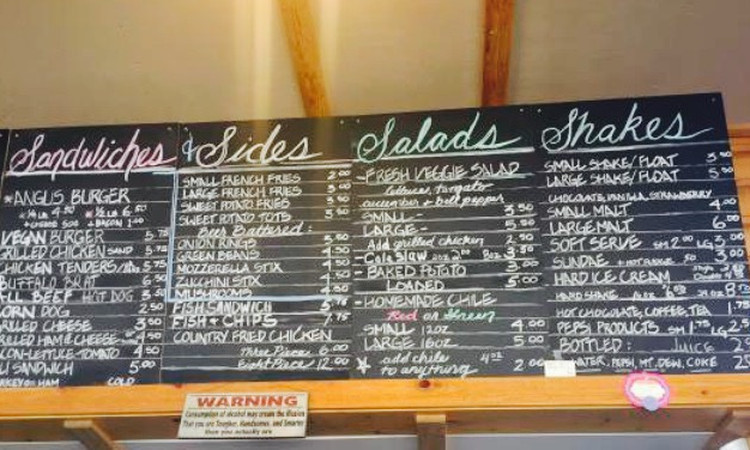 Sandwiches
*ANGUS BURGER
*¼ LB 4.50 *½ LB 6.50
+CHEESE 50¢ +BACON 1.00
VEGAN BURGER 5.75
GRILLED CHICKEN SAND 5.75
CHICKEN TENDERS 5.75
BUFFALO BRAT 6.50
ALL BEEF HOT DOG
CORN DOG 2.50
GRILLED CHEESE 3.50
GRILLED HAM & CHEESE 4.50
LETTUCE-TOMATO 4.50
SANDWICH 5.00
TURKEY OR HAM COLD
& Sides
SMALL FRENCH FRIES 2.00
LARGE FRENCH FRIES 3.00
SWEET POTATO FRIES 3.50
SWEET POTATO TOTS 3.50
Beer Battered:
ONION RINGS
GREEN BEANS
MOZZERELLA STIX
ZUCCHINI STIX
MUSHROOMS
FISH SANDWICH 5.75
FISH & CHIPS 7.75
COUNTRY FRIED CHICKEN
Three Piece 6.00
Eight Piece 12.00
Salads
-FRESH VEGGIE SALAD
lettuce, tomato
cucumber & bell pepper
SMALL- 3.50
LARGE- 5.50
Add grilled chicken 2.50
-Coleslaw 4oz 2.00 8oz 3.50
-BAKED POTATO 3.00
LOADED 5.00
-HOMEMADE CHILE
Red or Green
SMALL 12oz 4.00
LARGE 16oz 5.00
* add chile 4oz
to anything 2.00
Shakes
SMALL SHAKE/FLOAT 3.50
LARGE SHAKE/FLOAT 5.00
CHOCOLATE, VANILLA, STRAWBERRY
SMALL MALT 4.00
LARGE MALT 6.00
SOFT SERVE SM 2.00 LG
SUNDAE + HOT FUDGE
HARD ICE CREAM
HARD SHAKE
HOT CHOCOLATE, COFFEE, TEA
PEPSI PRODUCTS SM 1.75 LG
BOTTLED: JUICE
WATER, PEPSI, MT. DEW, COKE
WARNING
Consumption of alcohol may create the illusion
That you are Tougher, Handsomer, and Smarter
than you actually are